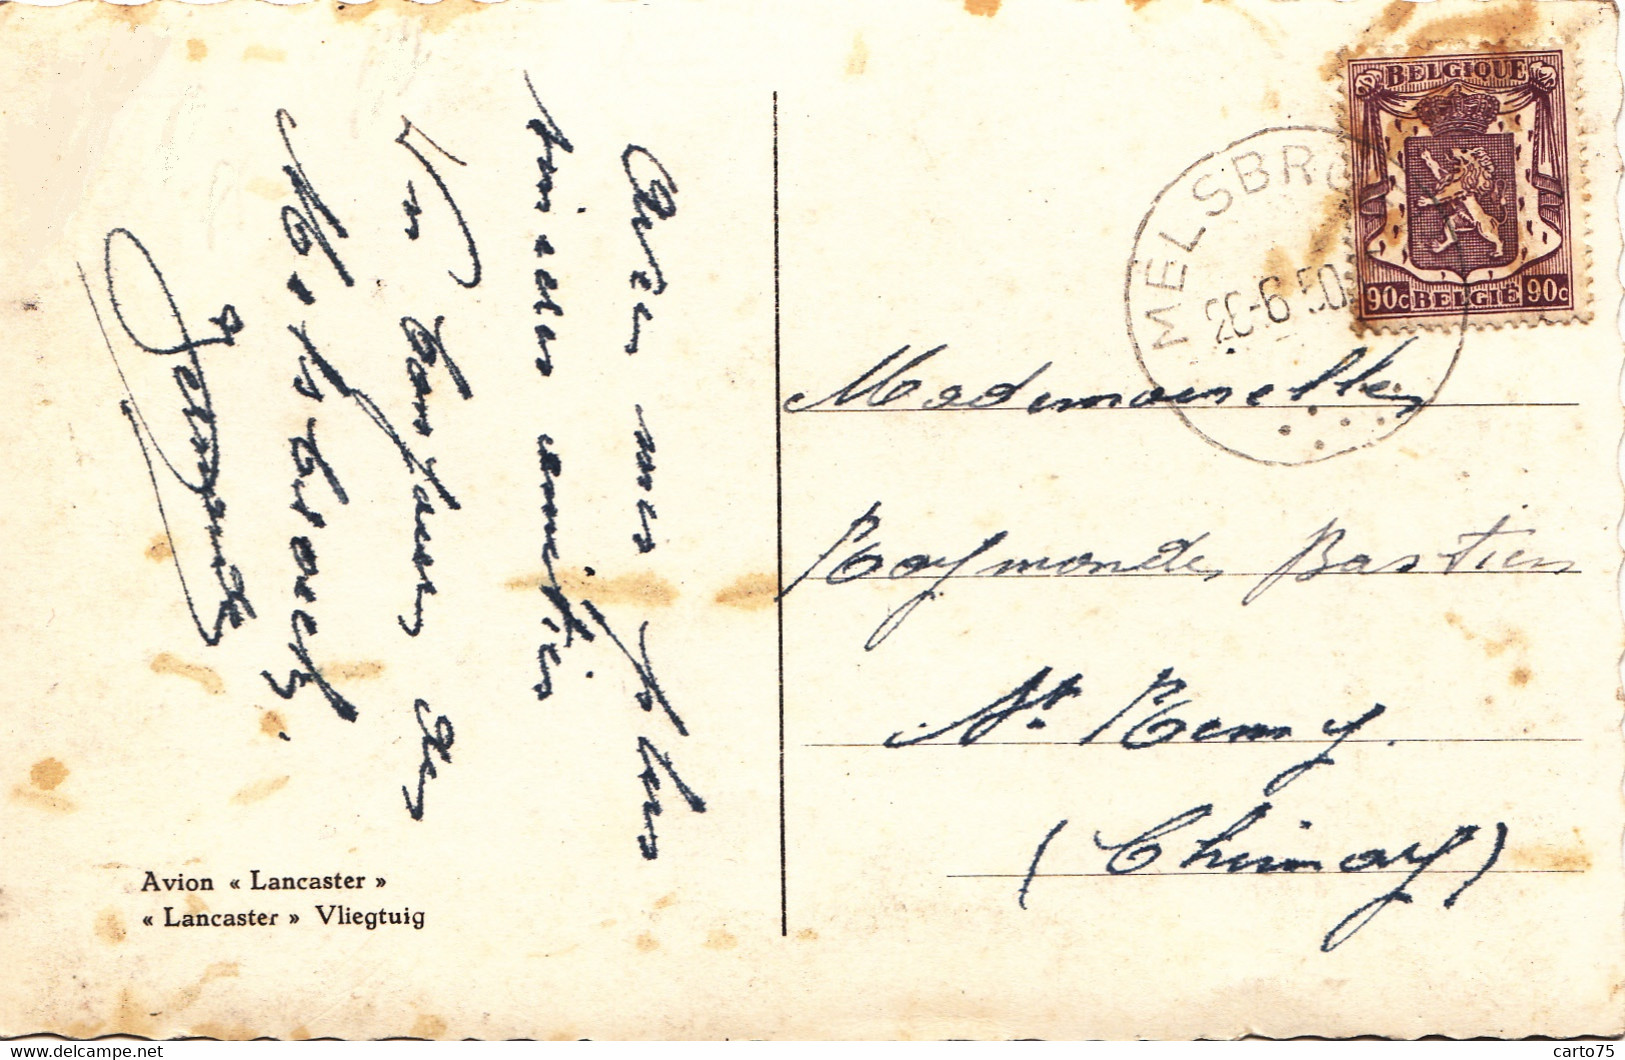 Avec mes plus
sincères amitiés
Un bonjour de
Melsbroek.
Fernande
Avion « Lancaster »
« Lancaster » Vliegtuig
BELGIQUE
90c BELGIË 90c
MELSBRO
6 50
Mademoiselle
Raymonde Bastien
St Remy.
(Chimay)
delcampe.net
carto75